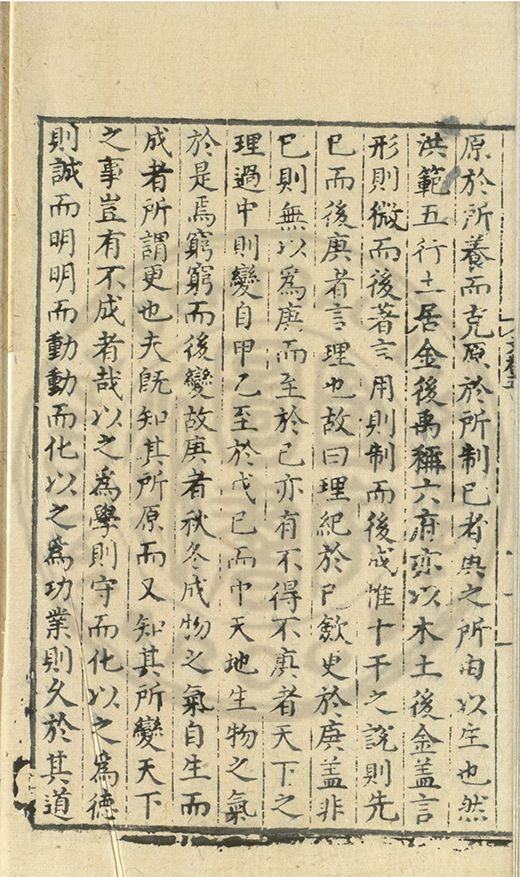 原於所養而克原於所制已者與之所由以生也然
洪範五行土居金後禹稱六府亦以木土後金盖言
形則微而後著言用則制而後成惟十干之說則先
已而後庚者言理也故曰理紀於已歛更於庚盖非
已則無以為庚而至於已亦有不得不庚者天下之
理過中則變自甲乙至於戊已而中天地生物之氣
於是焉窮窮而後變故庚者秋冬成物之氣自生而
成者所謂更也夫既知其所原而又知其所變天下
之事豈有不成者哉以之為學則守而化以之為德
則誠而明明而動動而化以之為功業則久於其道